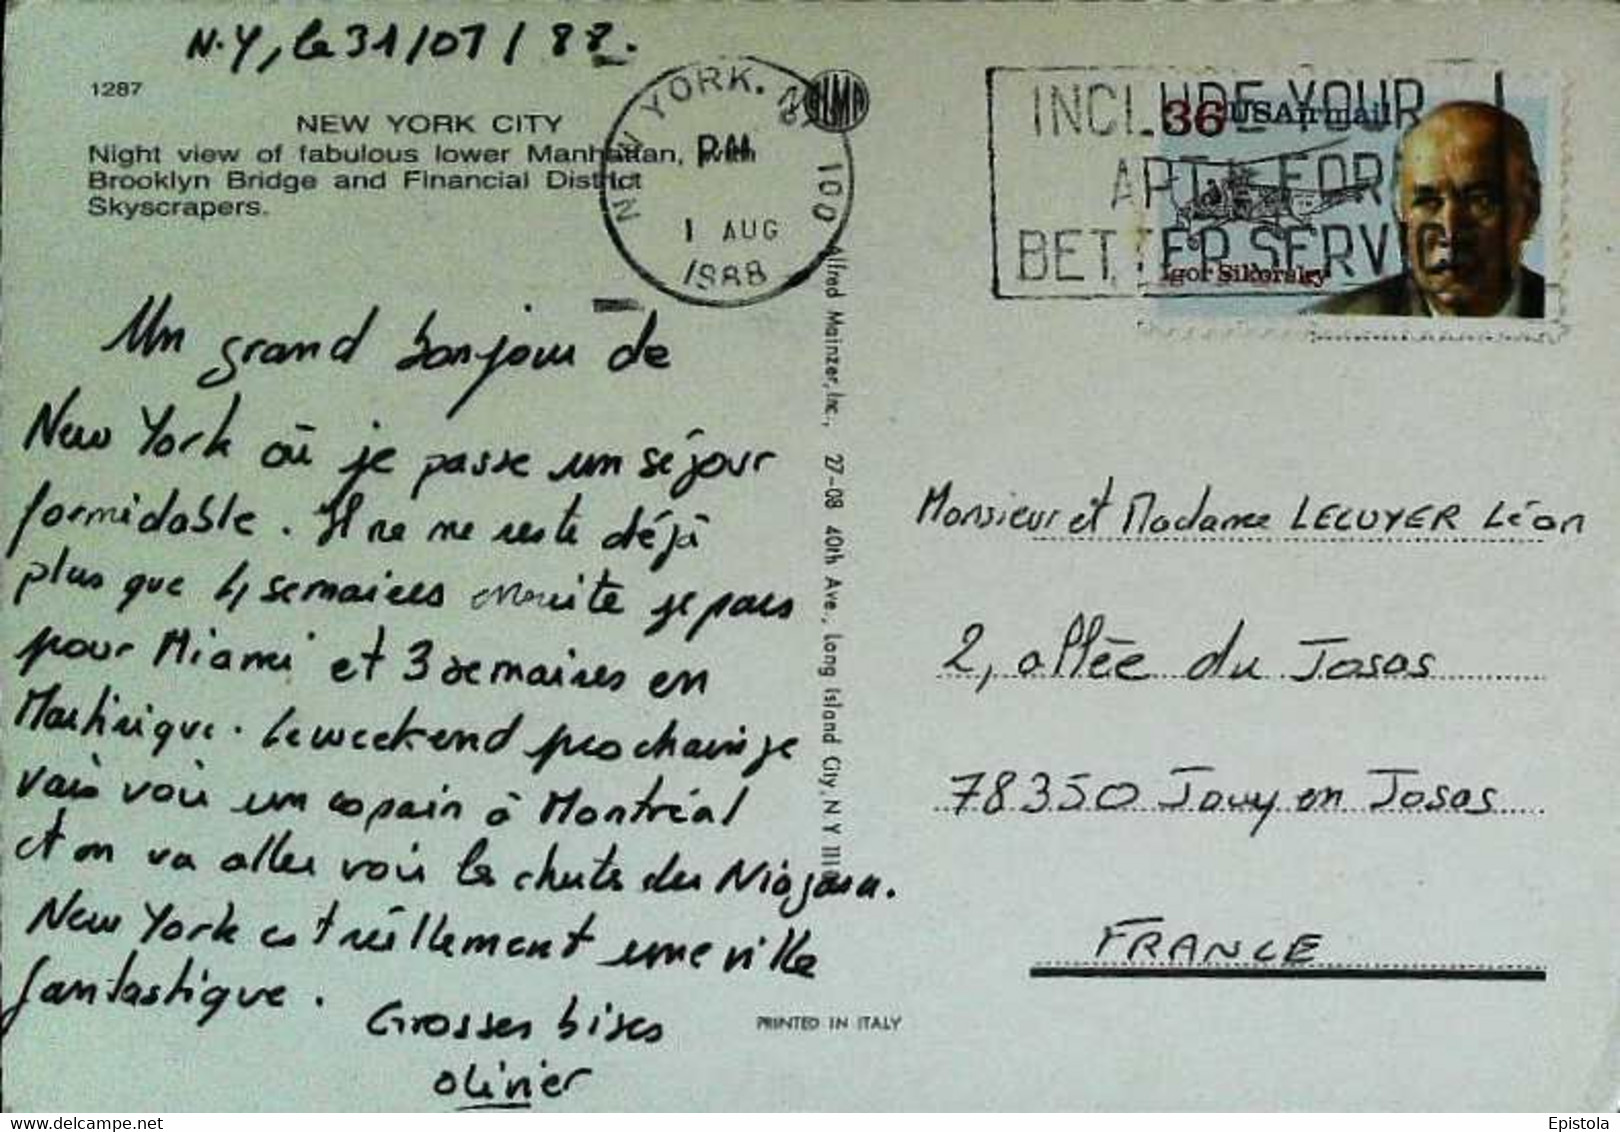 N.Y, le 31/07/88.
1287
NEW YORK CITY
Night view of fabulous lower Manhattan, with
Brooklyn Bridge and Financial District
Skyscrapers.
NEW YORK, NY
PM
1 AUG
1988
100
INCLUDE YOUR
APT. FOR
BETTER SERVICE
36 USAirmail
Igor Sikorsky
Un grand bonjour de
New York où je passe un séjour
formidable. Il ne me reste déjà
plus que 4 semaines ensuite je pars
pour Miami et 3 semaines en
Martinique. Le weekend prochain je
vais voir un copain à Montréal
et on va aller voir les chutes du Niagara.
New York est réellement une ville
fantastique.
Grosses bises
Olivier
Alfred Mainzer, Inc., 27-08 40th Ave., Long Island City, N Y 111
PRINTED IN ITALY
Monsieur et Madame LECUYER Léon
2, allée du Josas
78350 Jouy en Josas
FRANCE
delcampe.net
Epistola